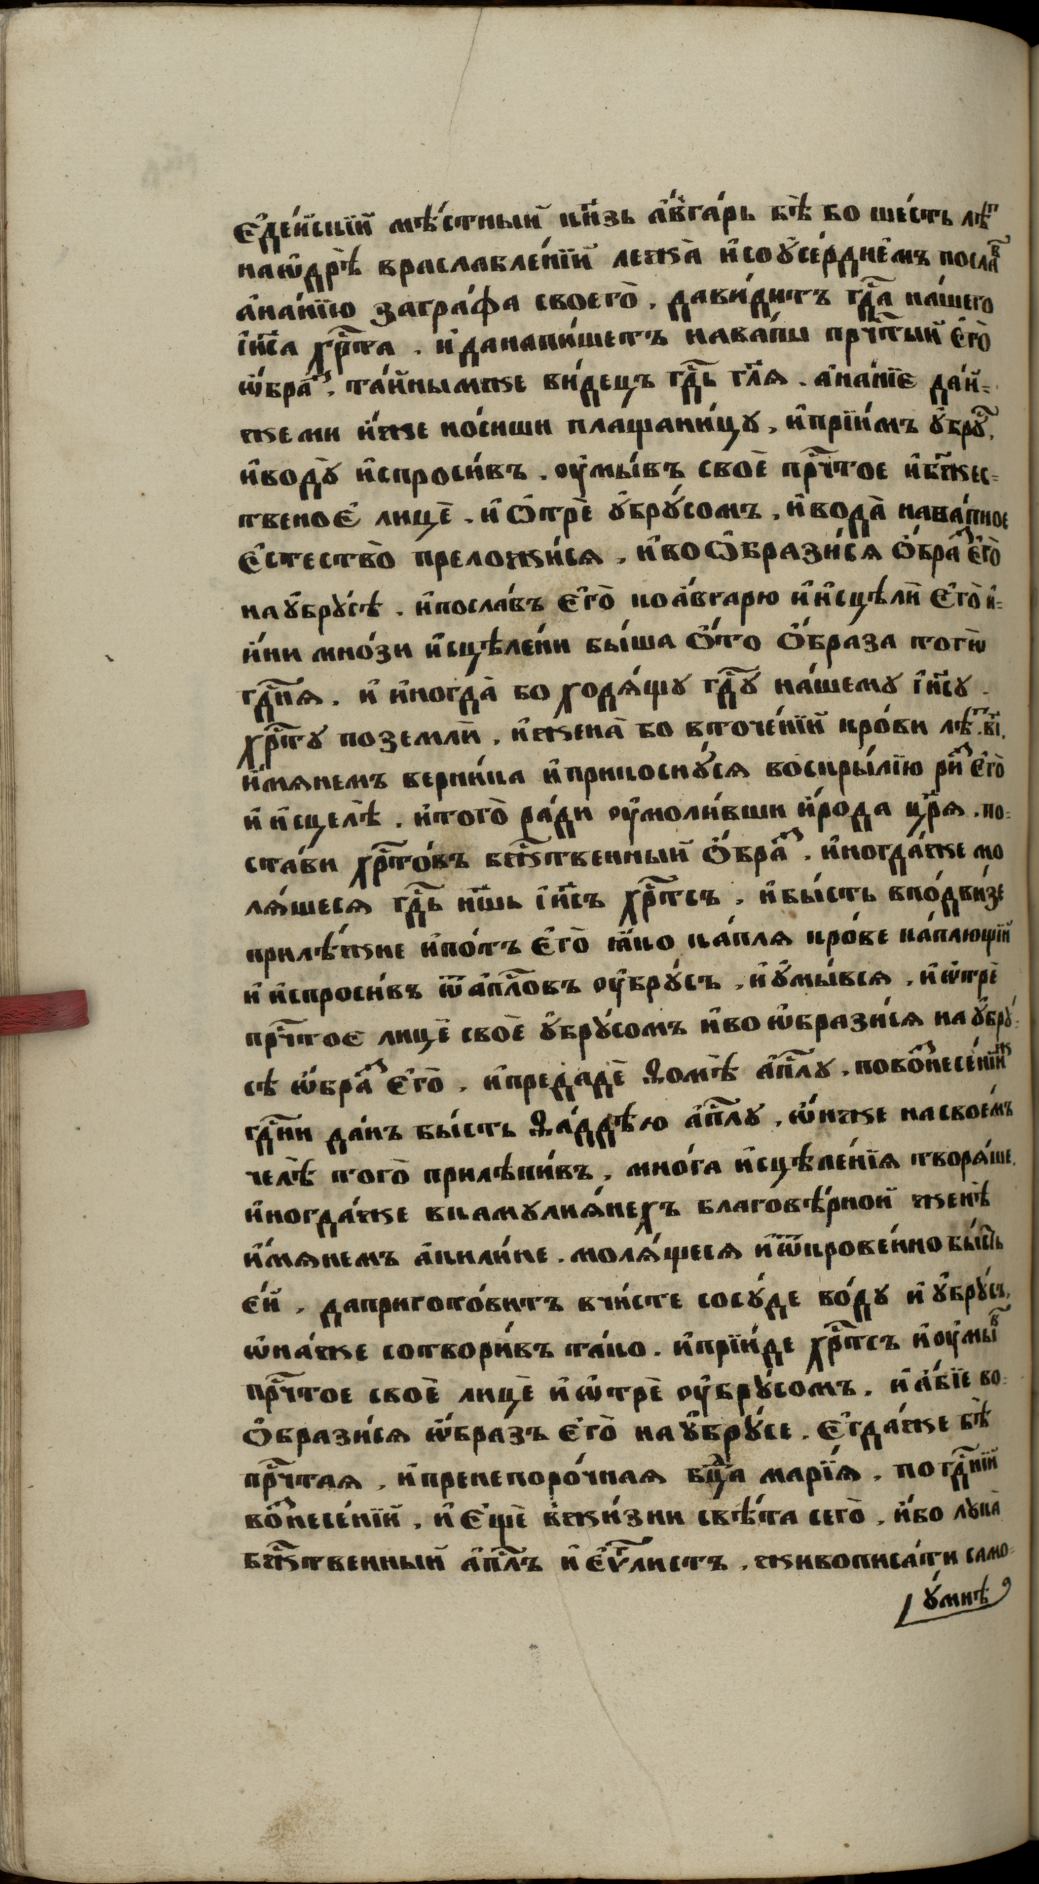 є҆де́йскїй мѣ́стный кн҃зь а҆́вгарь бѣ̀ бо ше́сть лѣ́т
на ѡ҆дрѣ̀ вразслабле́нїй лежа̀ и҆ со у҆се́рдиемъ посла́в
а҆на́нїю загра́фа своего̀ . да ви́дитъ гдⷭ҇а на́шего
і҆и҃са хрⷭ҇та . и҆ да напи́шетъ на ва́пы прⷱ҇тый є҆го̀
ѡ҆́браз . та́йнымже ви́децъ гдⷭ҇ь гл҃я . а҆на́нїе да́й-
же ми ю҆́же носиши плащани́цу , и҆ прїи́мъ у҆бру́с ,
и҆ воду̀ и҆спроси́въ . оу҆мы́въ своѐ прⷱ҇тое и҆ бж҃ес-
твеное лицѐ . и҆ ѻ҆трѐ у҆бру́сомъ , и҆ вода̀ на ва́пное
є҆стество̀ преложи́ся , и҆ воѻ҆брази́ся ѻ҆́браз є҆го̀
на у҆́брусѣ . и҆ посла́въ є҆го̀ ко а҆́вгарю и҆ и҆сцѣлѝ є҆го̀ и҆-
и҆́ни мно́зи и҆сцѣле́ни бы́ша ѻ҆́то ѻ҆́браза тогѡ
гдⷭ҇ня . и҆ и҆ногда̀ бо ходя́щу гдⷭ҇у на́шему і҆и҃су .
хрⷭ҇ту по землѝ , и҆ жена̀ бо вточе́нїй кро́ви лѣ́т . в҃і .
и҆́мянемъ верни́ка и҆ прикосну́ся воскры́лїю ри́з є҆го̀
и҆ и҆сцелѣ̀ . и҆ того̀ ра́ди оу҆моли́вши и҆́рода цр҃я . по-
ста́ви хрⷭ҇то́въ бжⷭ҇твенный ѻ҆́браз . и҆ногда́же мо
ля́шеся гдⷭ҇ь на́шь і҆и҃съ хрⷭ҇тсъ , и҆ бы́сть в по́двизе
прилѣ́жне и҆ по́тъ є҆го̀ ꙗ҆́ко ка́пля кро́ве ка́плющїй
и҆ и҆спроси́въ ѿ а҆пⷭ҇лов оу҆бру́съ , и҆ у҆мы́вся , и҆ ѡ҆трѐ
прⷱ҇тое лицѐ своѐ у҆бру́сомъ и҆ воѡ҆брази́ся на у҆бру́-
сѣ ѡ҆́браз є҆го̀ , и҆ предадѐ ѳомѣ̀ а҆пⷭ҇лу , по вознесе́нїй ж
гдⷭ҇ни да́нъ бы́сть ѳа́ддѣю а҆пⷭ҇лу , ѡ҆́нже на своем
челѣ̀ того̀ прилѣпи́въ , мно́га и҆сцѣле́нїя творя́ше .
и҆ногда́же в камулия́нехъ благовѣ́рной женѣ̀
и҆́мянемъ а҆килине . моля́щеся и҆ ѿкрове́нно бы́сть
є҆́й , да пригото́витъ в чи́сте сосу́де во́ду и҆ у҆бру́съ ,
ѡ҆на́же сотвори́въ та́ко . и҆ прїи́де хрⷭ҇тсъ и҆ оу҆мы́в
прⷱ҇тое своѐ лицѐ и҆ ѡ҆трѐ оу҆бру́сомъ . и҆ а҆́бїе во-
ѻ҆брази́ся ѡ҆́бразъ є҆го̀ на у҆бру́се . є҆гда́же бѣ̀
прⷱ҇тая , и҆ пренепоро́чная бц҃а марі́я , по гдⷭ҇нїй
вознесе́нїй , и҆ є҆щѐ в жи́зни свѣ́та сего̀ , и҆́бо лука̀
бжⷭ҇твенный а҆пⷭ҇лъ и҆ є҆ѵⷢ҇листъ , живописа́ти само-
у҆́мнѣ